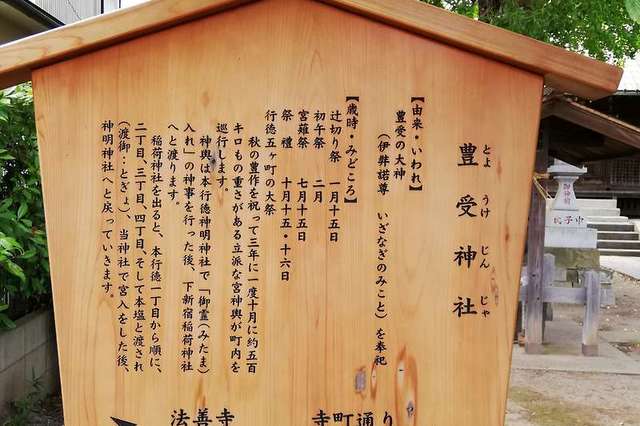 豊受神社
とようけじんじゃ
【由来・いわれ】
豊受の大神
(伊弊諾尊 いざなぎのみこと)を奉祀
【歳時・みどころ】
辻切り祭 一月十五日
初午祭 二月
宮薙祭 七月十五日
祭禮 十月十五・十六日
行徳五ヶ町の大祭
秋の豊作を祝って三年に一度十月に約五百
キロもの重さがある立派な宮神輿が町内を
巡行します。
神輿は本行徳神明神社で「御霊(みたま)
入れ」の神事を行った後、下新宿稲荷神社
へと渡ります。
稲荷神社を出ると、本行徳一丁目から順に、
二丁目、三丁目、四丁目、そして本塩と渡され
(渡御:とぎょ)、当神社で宮入をした後、
神明神社へと戻っていきます。
寺町通り
法善寺